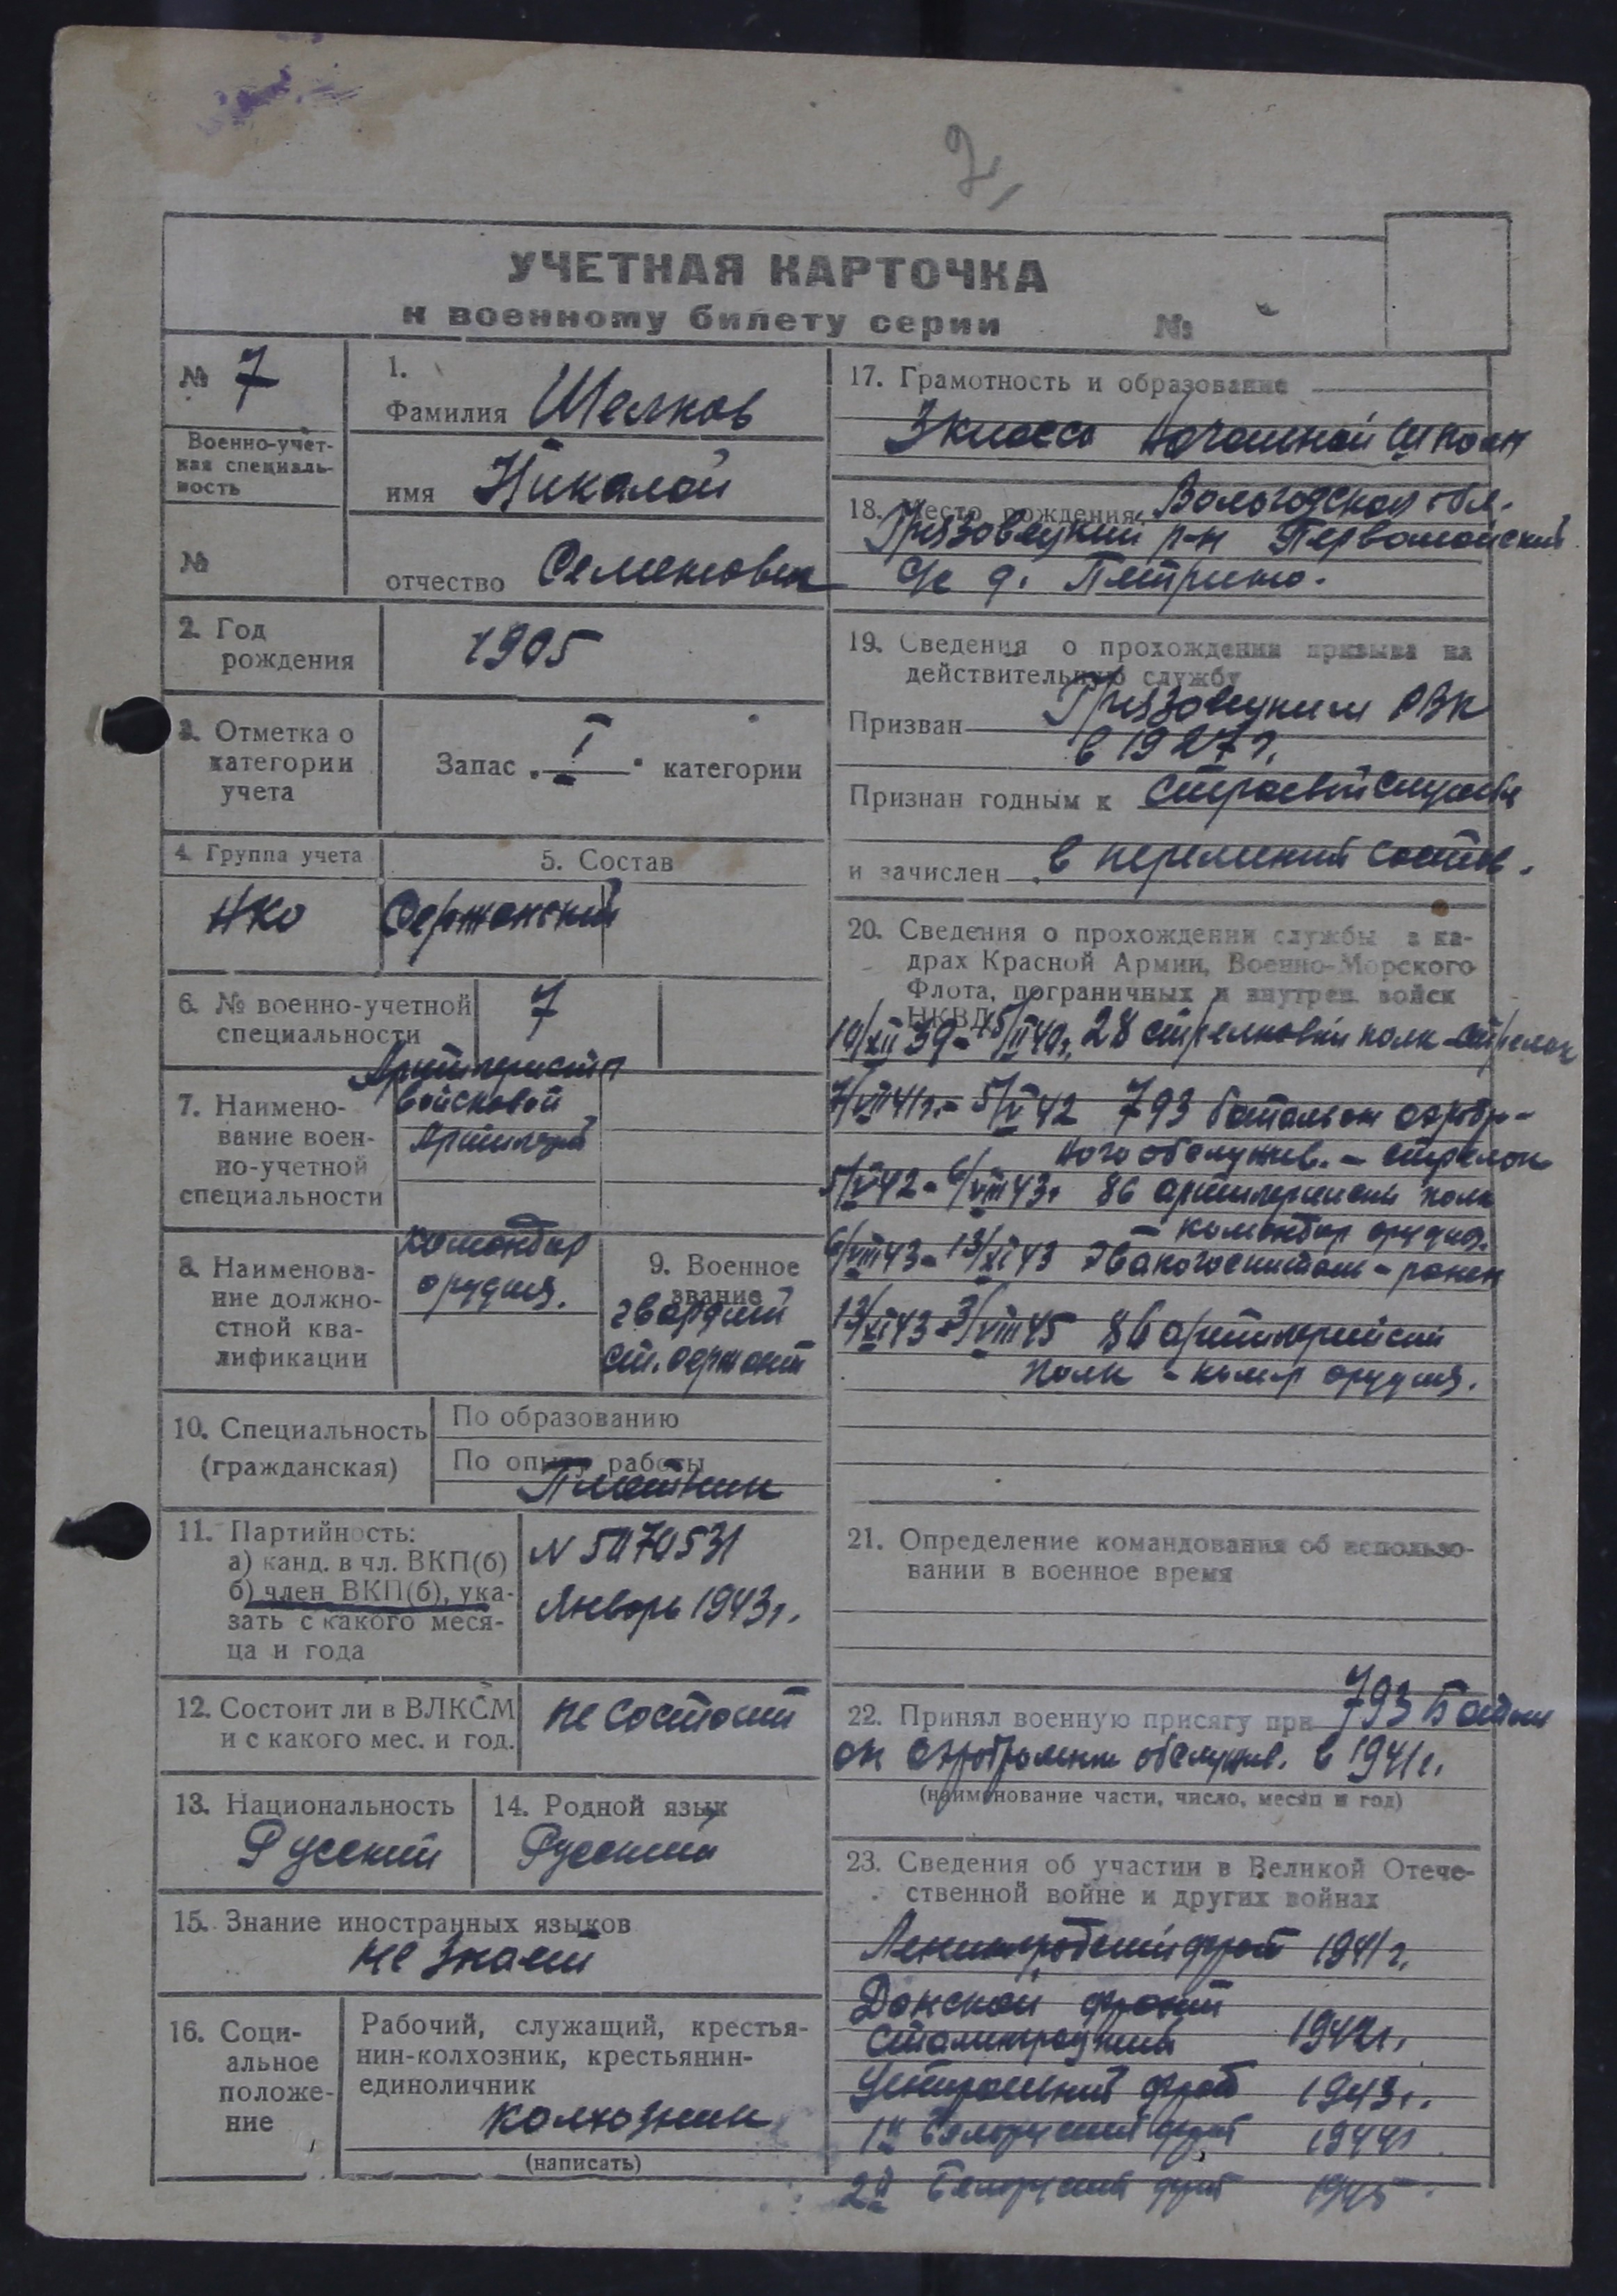 2,
УЧЕТНАЯ КАРТОЧКА
к военному билету серии №
№ 7
Военно-учет-
ная специаль-
ность
№
1.
Фамилия Шелков
имя Николай
отчество Семенович
2. Год
рождения
1905
3. Отметка о
категории
учета
Запас „ I " категории
4. Группа учета
НКО
5. Состав
Сержанский
6. № военно-учетной
специальности
7
7. Наимено-
вание воен-
но-учетной
специальности
Артиллерист
войсковой
Артилерий
8. Наименова-
ние должно-
стной ква-
лификации
командир
орудия.
9. Военное
звание
гвардий
ст. сержант
10. Специальность
(гражданская)
По образованию
По опыту работы
Плотник
11. Партийность:
а) канд. в чл. ВКП(б)
б) член ВКП(б), ука-
зать с какого меся-
ца и года
N 5070531
Январь 1943г.
12. Состоит ли в ВЛКСМ
и с какого мес. и год.
не состоит
13. Национальность
Русский
14. Родной язык
Русский
15. Знание иностранных языков
не знает
16. Соци-
альное
положе-
ние
Рабочий, служащий, крестья-
нин-колхозник, крестьянин-
единоличник
колхозник
(написать)
17. Грамотность и образование
3 класса начальной школы
18. Место рождения Вологодская обл.
Грязовецкий р-н Первомайский
с/с д. Петрино.
19. Сведения о прохождении призыва на
действительную службу
Призван Грязовецким РВК
в 1927 г.
Признан годным к строевой службе
и зачислен в переменый состав.
20. Сведения о прохождении службы в ка-
драх Красной Армии, Военно-Морского
Флота, пограничных и внутрен. войск
НКВД
10/XII 39 - 15/II 40г. 28 стрелковый полк - стрелок
7/VII 41г. - 5/V 42 793 батальон аэродр-
ного обслужив. - стрелок
5/V 42 - 6/VIII 43г 86 артилерийский полк
- командир орудия.
6/VIII 43 - 13/XI 43 Эвакогоспиталь - ранен
13/XI 43 - 3/VIII 45 86 артилерийский
полк - ком-р орудия.
21. Определение командования об использо-
вании в военное время
22. Принял военную присягу при 793 Батальи
он аэродромного обслужив. в 1941г.
(наименование части, число, месяц и год)
23. Сведения об участии в Великой Отече-
ственной войне и других войнах
Ленинградский фронт 1941 г.
Донской фронт
Сталинградский 1942г.
Центральный фронт 1943г.
1й Белоруский фронт 1944г
2й Белоруский фронт 1945